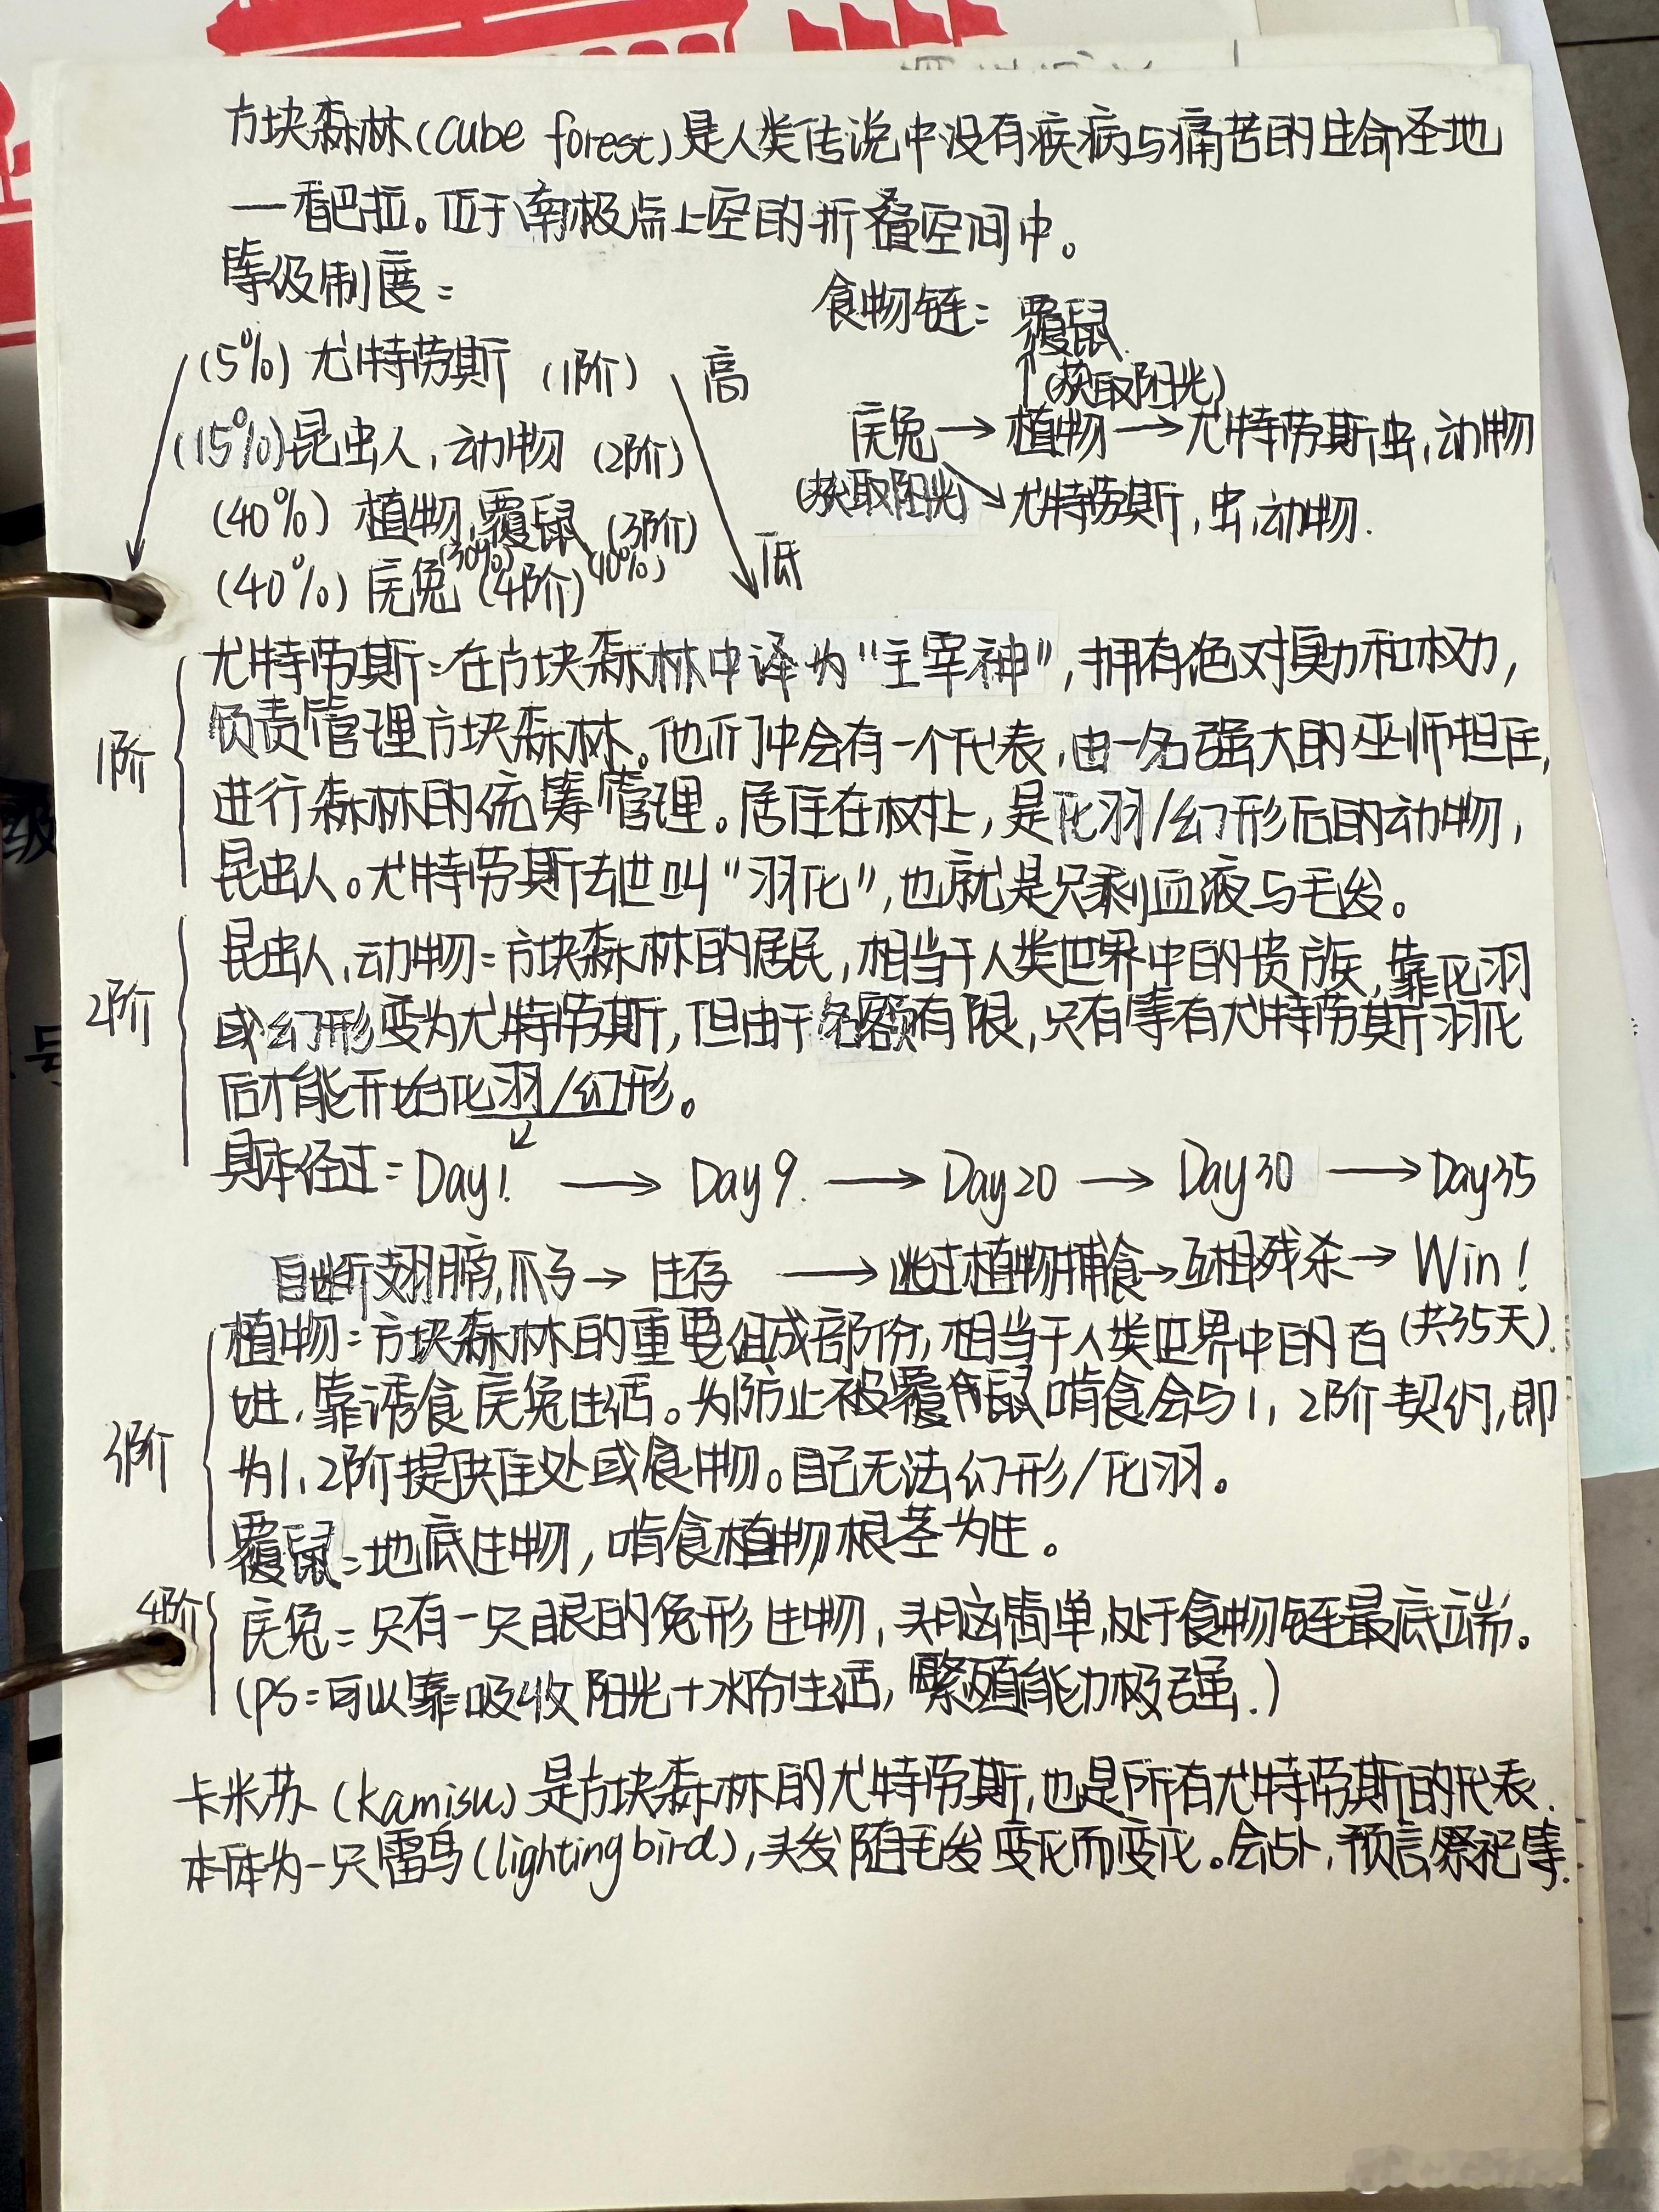 方块森林(cube forest)是人类传说中没有疾病与痛苦的生命圣地
一香巴拉。位于南极点上空的折叠空间中。
等级制度:
(5%)尤特劳斯(1阶) 高
(15%)昆虫人,动物(2阶)
(40%)植物,覆鼠(3阶)
(30%) (10%)
(40%) 兔(4阶) 低
食物链:覆鼠
↑(获取阳光)
兔→植物→尤特劳斯虫,动物
(获取阳光)↘尤特劳斯,虫,动物.
1阶
尤特劳斯:在方块森林中译为"主宰神",拥有绝对实力和权力,
负责管理方块森林。他们中会有一个代表,由一名强大的巫师担任,
进行森林的统筹管理。居住在树上,是化羽/幻形后的动物,
昆虫人。尤特劳斯去世叫"羽化",也就是只剩血液与毛发。
2阶
昆虫人,动物:方块森林的居民,相当于人类世界中的贵族,靠化羽
或幻形变为尤特劳斯,但由于名额有限,只有等有尤特劳斯羽化
后才能开始化羽/幻形。
具体经过:Day1. → Day9. → Day20 → Day30 → Day35
自断翅膀,爪子→ 生存 → 逃过植物捕食→互相残杀→ Win!
(共35天)
3阶
植物:方块森林的重要组成部份,相当于人类世界中的百
姓,靠诱食 兔生活。为防止被覆鼠啃食会与1,2阶契约,即
为1,2阶提供住处或食物。自己无法幻形/化羽。
覆鼠:地底生物,啃食植物根茎为生。
4阶
兔:只有一只眼的兔形生物,头脑简单,处于食物链最底端。
(ps:可以靠吸收阳光+水份生活,繁殖能力极强.)
卡米苏(kamisu)是方块森林的尤特劳斯,也是所有尤特劳斯的代表.
本体为一只雷鸟(lighting bird),头发随毛发变化而变化。会占卜,预言,祭祀等.